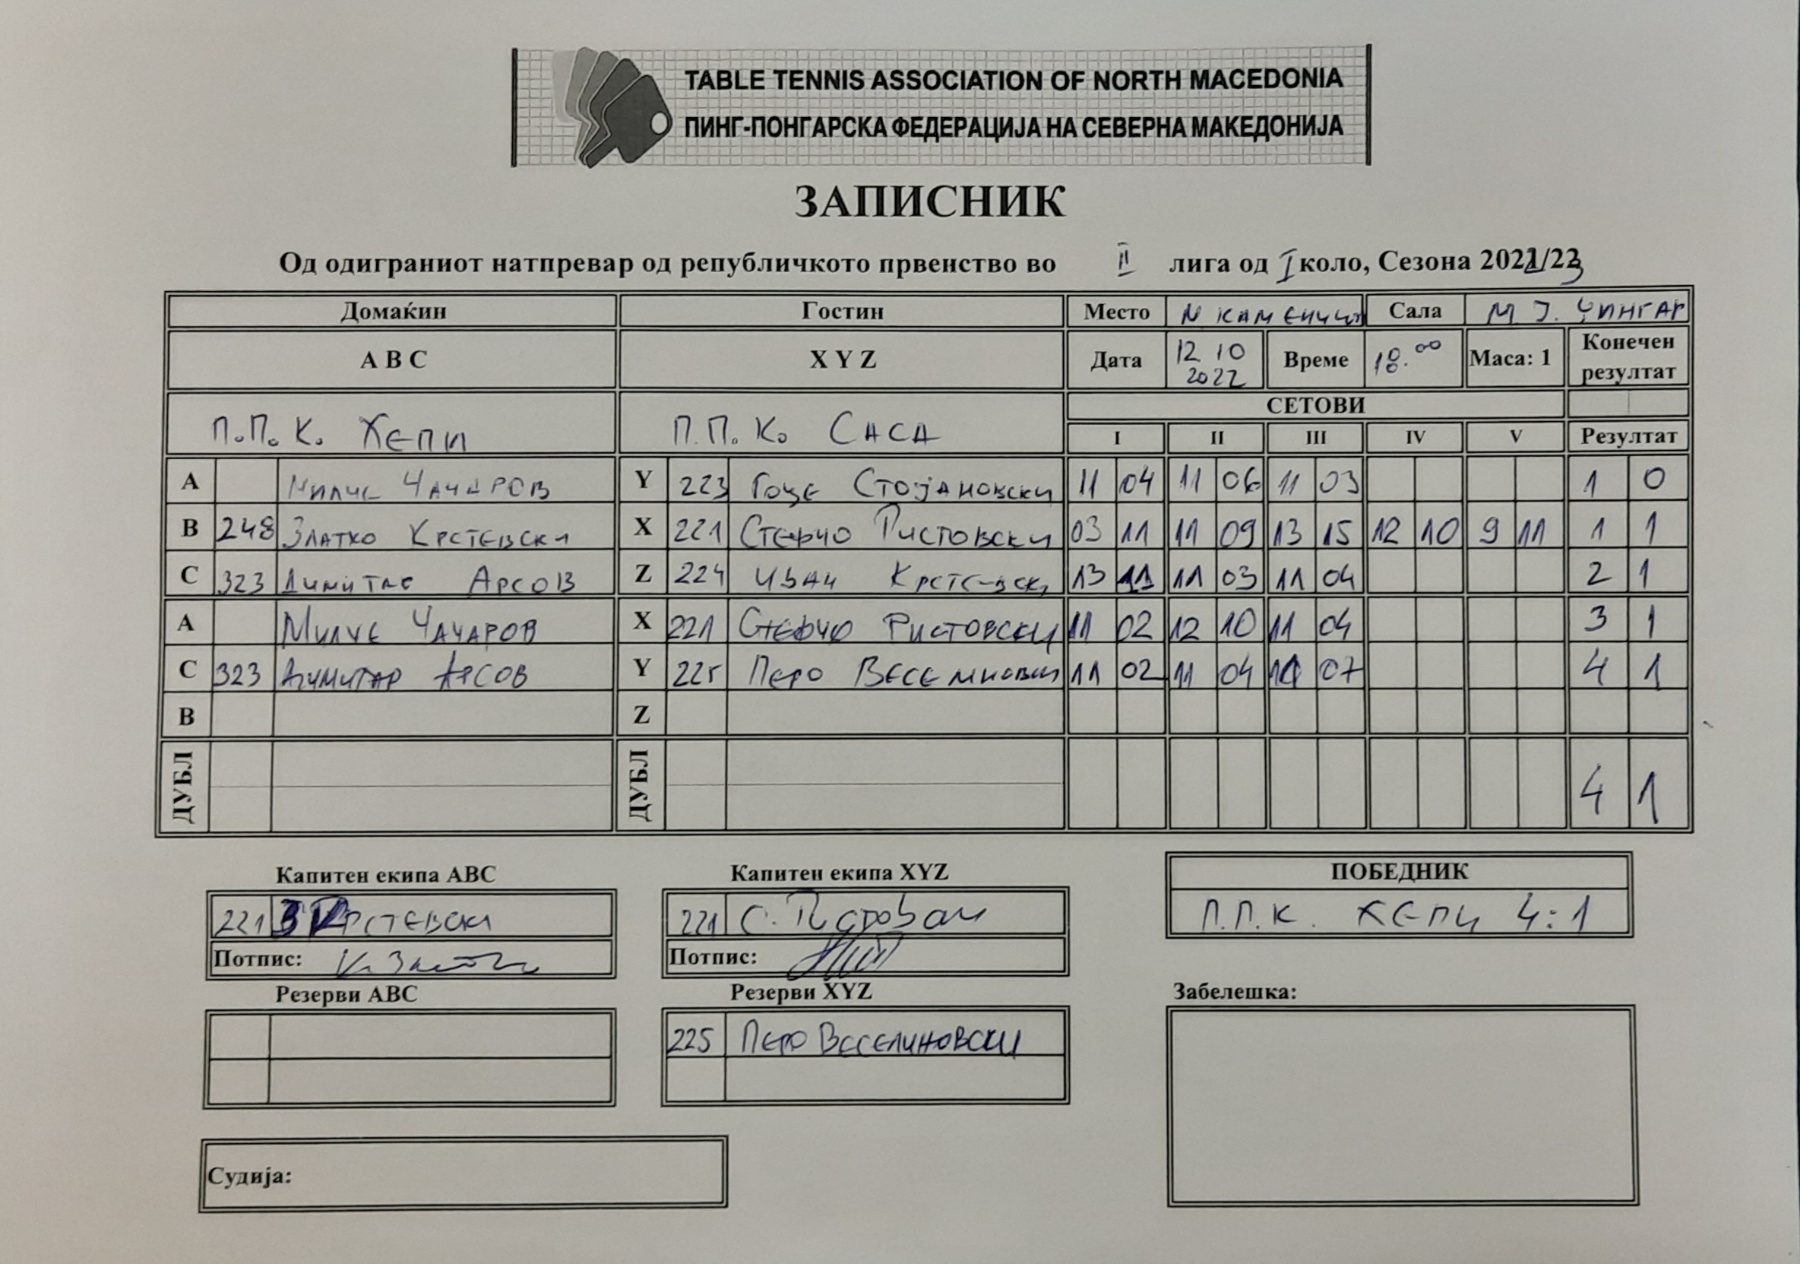 TABLE TENNIS ASSOCIATION OF NORTH MACEDONIA
ПИНГ-ПОНГАРСКА ФЕДЕРАЦИЈА НА СЕВЕРНА МАКЕДОНИЈА
ЗАПИСНИК
Од одиграниот натпревар од републичкото првенство во II лига од I коло, Сезона 2022/23
Домаќин Гостин Место М КАМЕНИЦА Сала М Ј. ЧИНГАР
A B C X Y Z Дата 12 10 2022 Време 18.00 Маса: 1 Конечен резултат
П.П.К. ХЕПИ П.П.К. САСА СЕТОВИ
I II III IV V Резултат
A МИЛЧЕ ЧАЧАРОВ Y 223 Гоце Стојановски 11 04 11 06 11 03 1 0
B 248 ЗЛАТКО КРСТЕВСКИ X 221 СТЕФЧО РИСТОВСКИ 03 11 11 09 13 15 12 10 9 11 1 1
C 323 АРСОВ Z 224 ИВАН КРСТЕВСКИ 13 11 11 03 11 04 2 1
A МИЛЧЕ ЧАЧАРОВ X 221 СТЕФЧО РИСТОВСКИ 11 02 12 10 11 04 3 1
C 323 ДИМИТАР АРСОВ Y 225 ПЕРО 11 02 11 04 11 07 4 1
B Z
ДУБЛ ДУБЛ 4 1
Капитен екипа ABC Капитен екипа XYZ ПОБЕДНИК
221 КРСТЕВСКИ 221 С. П.П.К. ХЕПИ 4:1
Потпис: Потпис:
Резерви ABC Резерви XYZ Забелешка:
225 ПЕРО ВЕСЕЛИНОВСКИ
Судија: